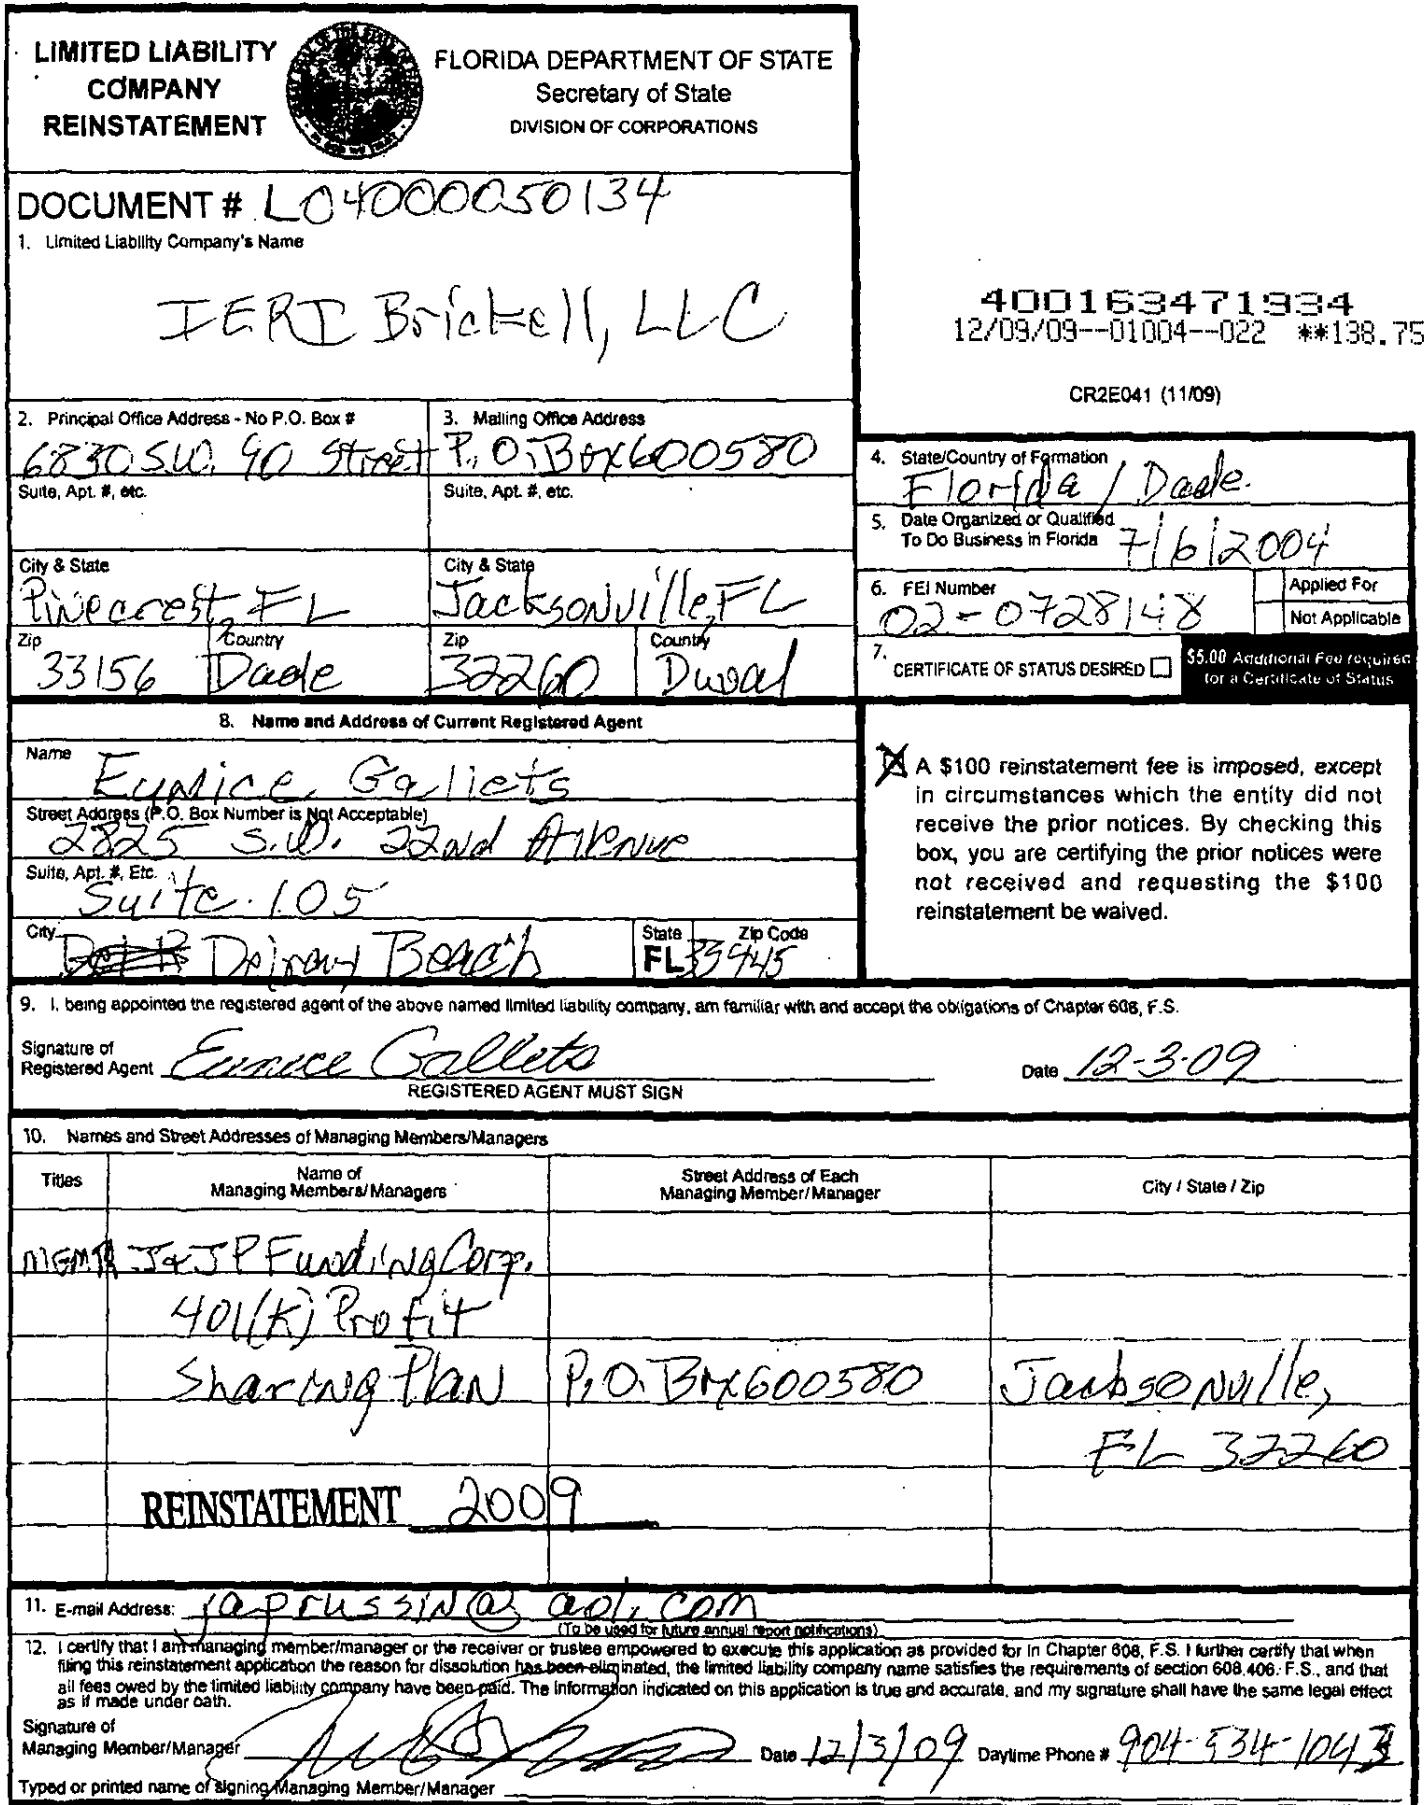 LIMITED LIABILITY
COMPANY
REINSTATEMENT
FLORIDA DEPARTMENT OF STATE
Secretary of State
DIVISION OF CORPORATIONS
DOCUMENT # L04000050134
1. Limited Liability Company's Name
IERI Brickell, LLC
400163471934
12/09/09--01004--022 **138.75
CR2E041 (11/09)
2. Principal Office Address - No P.O. Box #
6830 S.W. 90 Street
Suite, Apt. #, etc.
City & State
Pinecrest, FL
Zip
33156
Country
Dade
3. Mailing Office Address
P.O. Box 600580
Suite, Apt. #, etc.
City & State
Jacksonville, FL
Zip
32260
Country
Duval
4. State/Country of Formation
Florida / Dade
5. Date Organized or Qualified
To Do Business in Florida 7/6/2004
6. FEI Number
02-0728148
Applied For
Not Applicable
7. CERTIFICATE OF STATUS DESIRED
$5.00 Additional Fee required
for a Certificate of Status
8. Name and Address of Current Registered Agent
Name
Eunice Galiets
Street Address (P.O. Box Number is Not Acceptable)
2825 S.W. 22nd Avenue
Suite, Apt. #, Etc.
Suite 105
City
Delray Beach
State
FL
Zip Code
33445
A $100 reinstatement fee is imposed, except
in circumstances which the entity did not
receive the prior notices. By checking this
box, you are certifying the prior notices were
not received and requesting the $100
reinstatement be waived.
9. I, being appointed the registered agent of the above named limited liability company, am familiar with and accept the obligations of Chapter 608, F.S.
Signature of
Registered Agent Eunice Gallets
Date 12-3-09
REGISTERED AGENT MUST SIGN
10. Names and Street Addresses of Managing Members/Managers
Titles
Name of
Managing Members/Managers
Street Address of Each
Managing Member/Manager
City / State / Zip
J&JP Funding Corp.
401(K) Profit
Sharing Plan P.O. Box 600580 Jacksonville,
FL 32260
REINSTATEMENT 2009
11. E-mail Address: japrussin@aol.com
(To be used for future annual report notifications)
12. I certify that I am managing member/manager or the receiver or trustee empowered to execute this application as provided for in Chapter 608, F.S. I further certify that when
filing this reinstatement application the reason for dissolution has been eliminated, the limited liability company name satisfies the requirements of section 608.406, F.S., and that
all fees owed by the limited liability company have been paid. The information indicated on this application is true and accurate, and my signature shall have the same legal effect
as if made under oath.
Signature of
Managing Member/Manager
Date 12/3/09 Daytime Phone # 904-534-1043
Typed or printed name of signing Managing Member/Manager